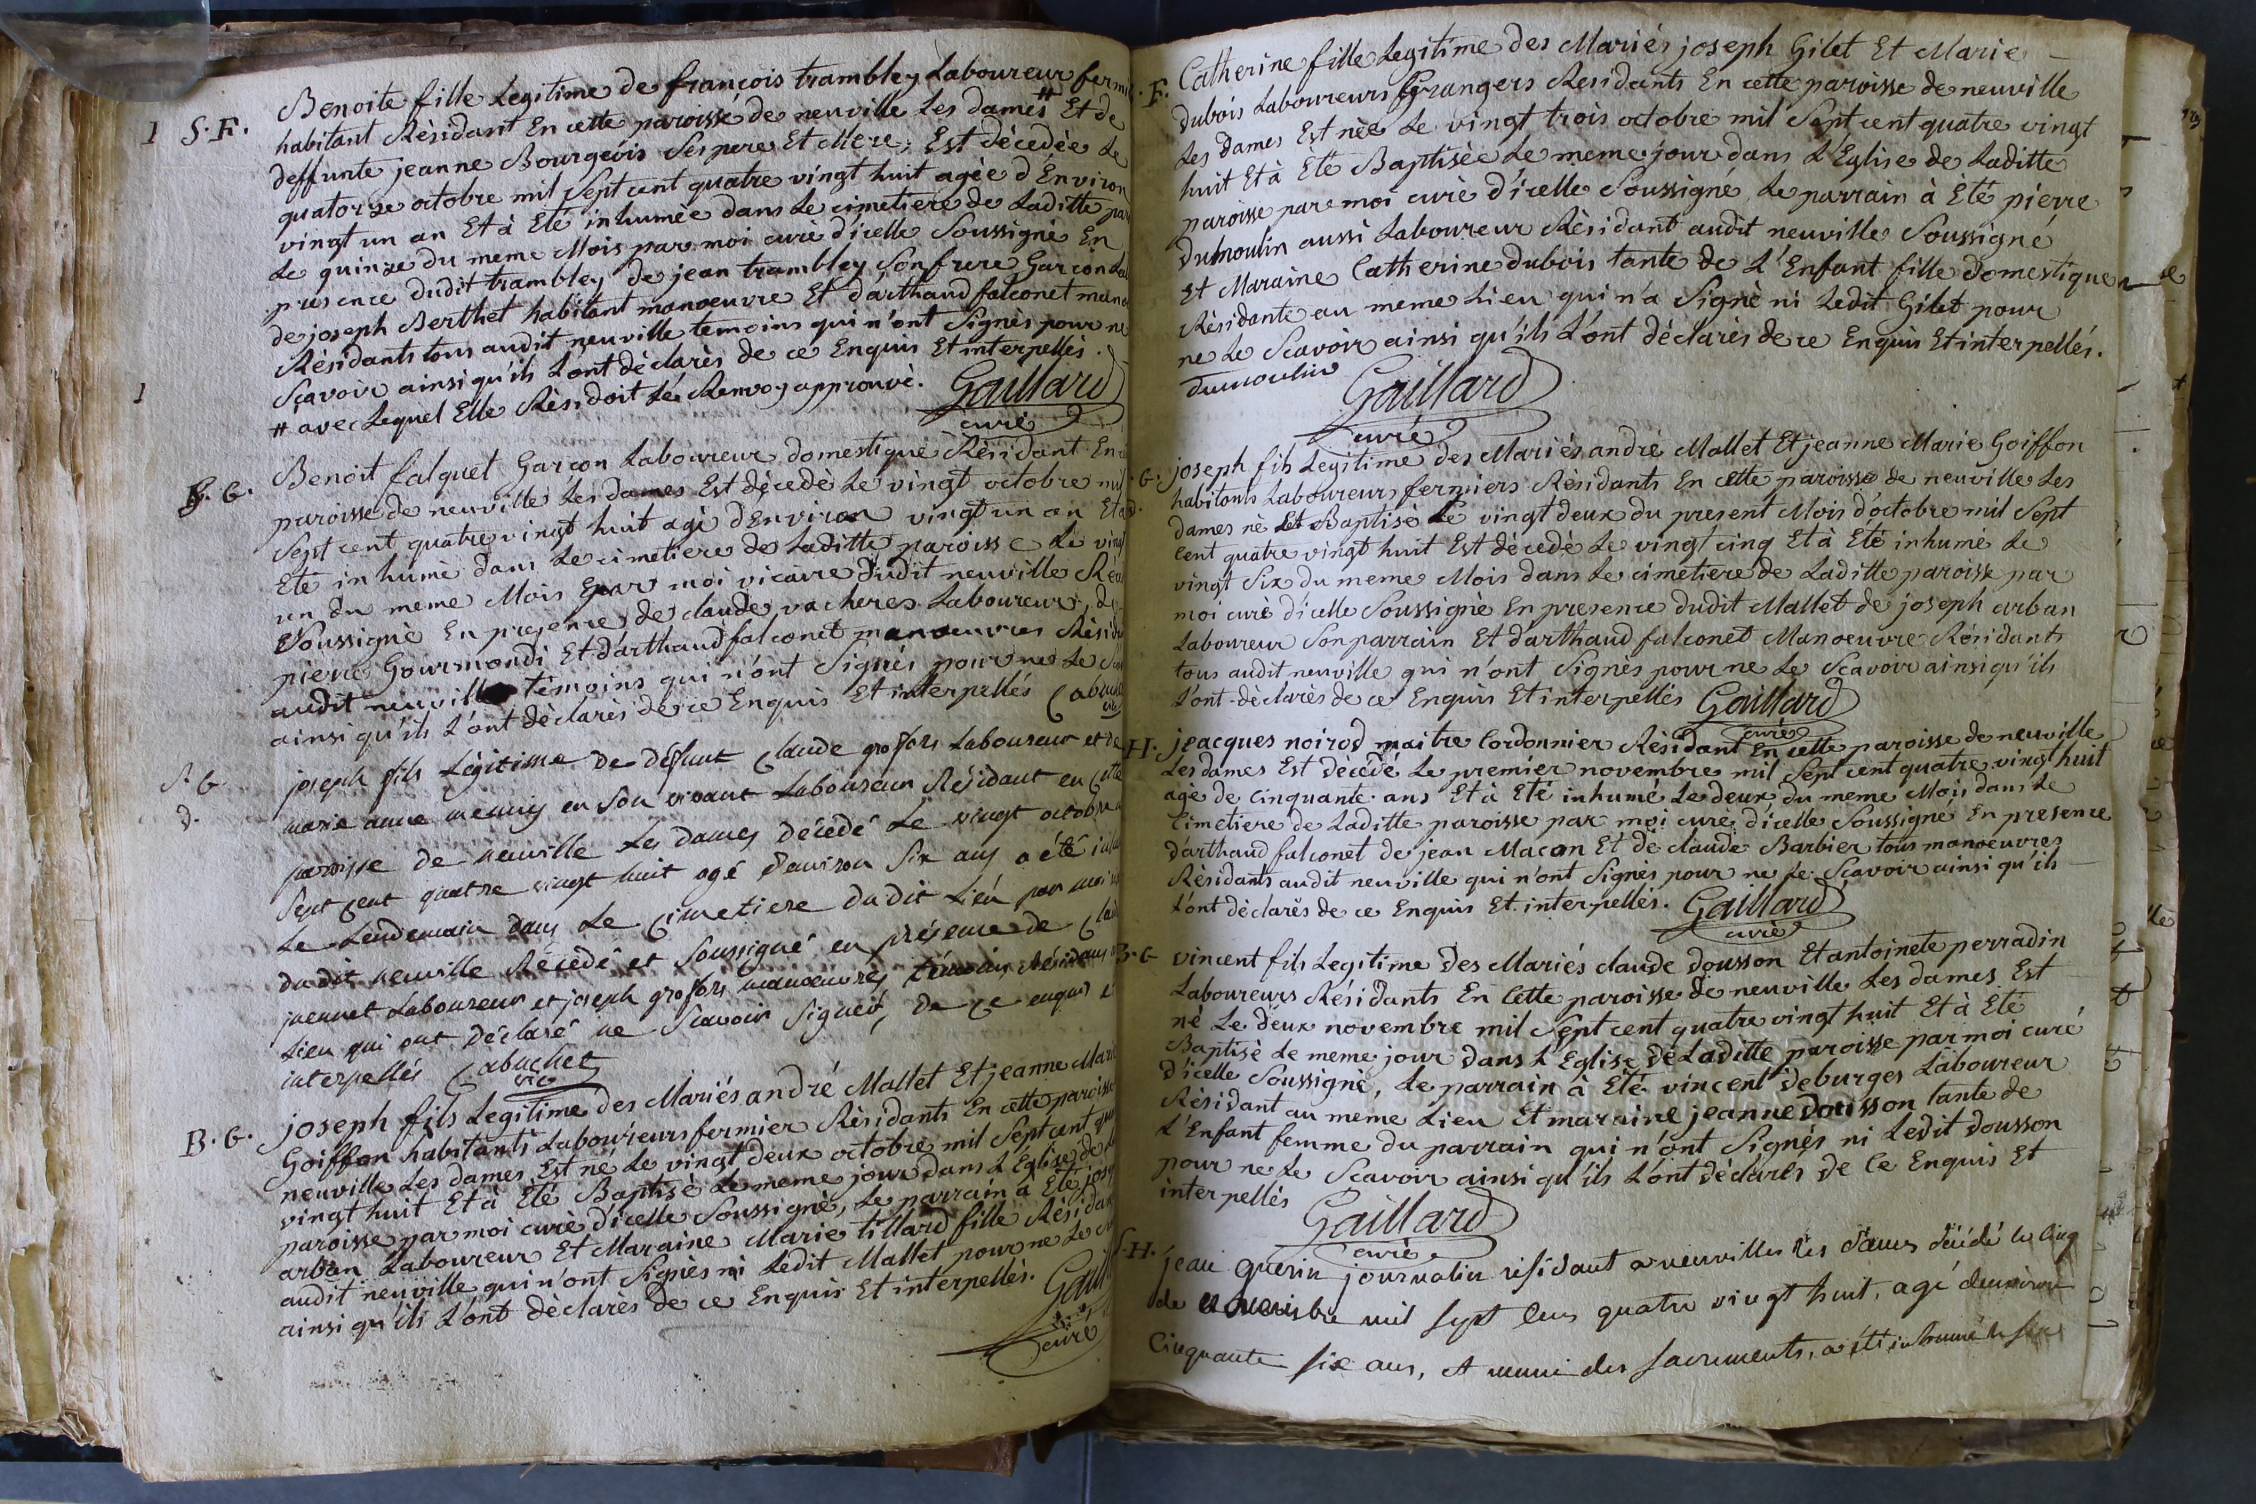 1 S. F. Benoite fille Legitime de françois trambley Laboureur
habitant Résidant En cette paroisse de neuville Les dames # Et de
deffunte jeanne Bourgeois Ses pere Et Mere, Est décedée Le
quatorze octobre mil Sept cent quatre vingt huit agée d'Environ
vingt un an Et à Eté inhumée dans Le cimetiere de Laditte
Le quinze du meme Mois par moi curé d'icelle Soussigné En
presence dudit trambley de jean trambley Son frere Garçon
de joseph Berthet habitant manoeuvre Et d'arthaud falconet
Résidants tous audit neuville temoins qui n'ont Signés pour ne
1 Scavoir ainsi qu'ils L'ont déclarés de ce Enquis Et interpellés.
# avec Lequel Elle Résidoit Renvoy approuvé. Gaillard
curé
S. G. Benoit falquet Garçon Laboureur domestique Résidant En
paroisse de neuville Les dames Est décedé Le vingt octobre mil
Sept cent quatre vingt huit agé d'Environ vingt un an Et à
Eté inhumé dans Le cimetiere de Laditte paroisse Le vingt
un du meme Mois par moi vicaire dudit neuville
Soussigné En presence de claude vacheres Laboureur, de
pierre Gourmondi Et d'arthaud falconet manoeuvres
audit neuville témoins qui n'ont Signés pour ne Le
ainsi qu'ils L'ont déclarés de ce Enquis Et interpellés
S. G. joseph fils Légitime de deffunt Claude grosfors Laboureur et de
D. marie anne meunis en Son vivant Laboureur Résidant en Cette
paroisse de neuville Les dames décédé Le vingt octobre
Sept cent quatre vingt huit agé d'environ Six ans a été
Le Lendemain dans Le Cimetiere dudit Lieu par moi
dudit neuville et Soussigné en présence de
juennet Laboureur et joseph grosfors manoeuvres, témoins
Lieu qui ont déclaré ne Scavoir Signer, de Ce enquis
interpellés Cabuchet
vic
B. G. joseph fils Legitime des Mariés andré Mallet Et jeanne
Goiffon habitants Laboureurs fermier Résidants En cette paroisse
neuville Les dames, Est né Le vingt deux octobre mil Sept cent
vingt huit Et à Eté Baptisé Le meme jour dans L'Eglise de
paroisse par moi curé d'icelle Soussigné, Le parrain à Eté
arban Laboureur Et Maraine Marie tillard fille
audit neuville qui n'ont Signés ni Ledit Mallet pour ne Le
ainsi qu'ils L'ont déclarés de ce Enquis Et interpellés.
curé
F. Catherine fille Legitime des Mariés joseph Gilet Et Marie
dubois Laboureurs Grangers Résidants En cette paroisse de neuville
Les dames Est née Le vingt trois octobre mil Sept cent quatre vingt
huit Et à Eté Baptisée Le meme jour dans L'Eglise de Laditte
paroisse par moi curé d'icelle Soussigné, Le parrain à Eté pierre
Dumoulin aussi Laboureur Résidant audit neuville Soussigné
Et Maraine Catherine dubois tante de L'Enfant fille domestique
Résidante au meme Lieu qui n'a Signé ni Ledit Gilet pour
ne Le Scavoir ainsi qu'ils L'ont déclarés de ce Enquis Et interpellés.
dumoulin Gaillard
curé
G. joseph fils Legitime des Mariés andré Mallet Et jeanne Marie Goiffon
habitants Laboureurs fermiers Résidants En cette paroisse de neuville Les
dames né Et Baptisé Le vingt deux du present Mois d'octobre mil Sept
Cent quatre vingt huit Est décedé Le vingt cinq Et à Eté inhumé Le
vingt Six du meme Mois dans Le cimetiere de Laditte paroisse par
moi curé d'icelle Soussigné En presence dudit Mallet de joseph arban
Laboureur Son parrain Et d'arthaud falconet Manoeuvre Résidants
tous audit neuville qui n'ont Signés pour ne Le Scavoir ainsi qu'ils
L'ont déclarés de ce Enquis Et interpellés Gaillard
curé
H. jeacques noirod maitre Cordonnier Résidant En cette paroisse de neuville
Les dames Est décédé Le premier novembre mil Sept cent quatre vingt huit
agé de cinquante ans Et à Eté inhumé Le deux du meme Mois dans Le
Cimetiere de Laditte paroisse par moi curé d'icelle Soussigné En presence
d'arthaud falconet de jean Macon Et de claude Barbier tous manoeuvres
Résidants audit neuville qui n'ont Signés pour ne Le Scavoir ainsi qu'ils
L'ont déclarés de ce Enquis Et interpellés. Gaillard
curé
B. G vincent fils Legitime des Mariés claude dousson Et antoinete perradin
Laboureurs Résidants En Cette paroisse de neuville Les dames Est
né Le deux novembre mil Sept cent quatre vingt huit Et à Eté
Baptisé Le meme jour dans L'Eglise de Laditte paroisse par moi curé
d'icelle Soussigné, Le parrain à Eté vincent deburges Laboureur
Résidant au meme Lieu Et maraine jeanne Dousson tante de
L'Enfant femme du parrain qui n'ont Signés ni Ledit dousson
pour ne Le Scavoir ainsi qu'ils L'ont déclarés de Ce Enquis Et
interpellés Gaillard
curé
S. H. jean guerin journalier résidant a neuville les dames décédé le cinq
de novembre mil sept cens quatre vingt huit, agé denviron
Cinquante six ans, et muni des sacrements, a été inhumé le six